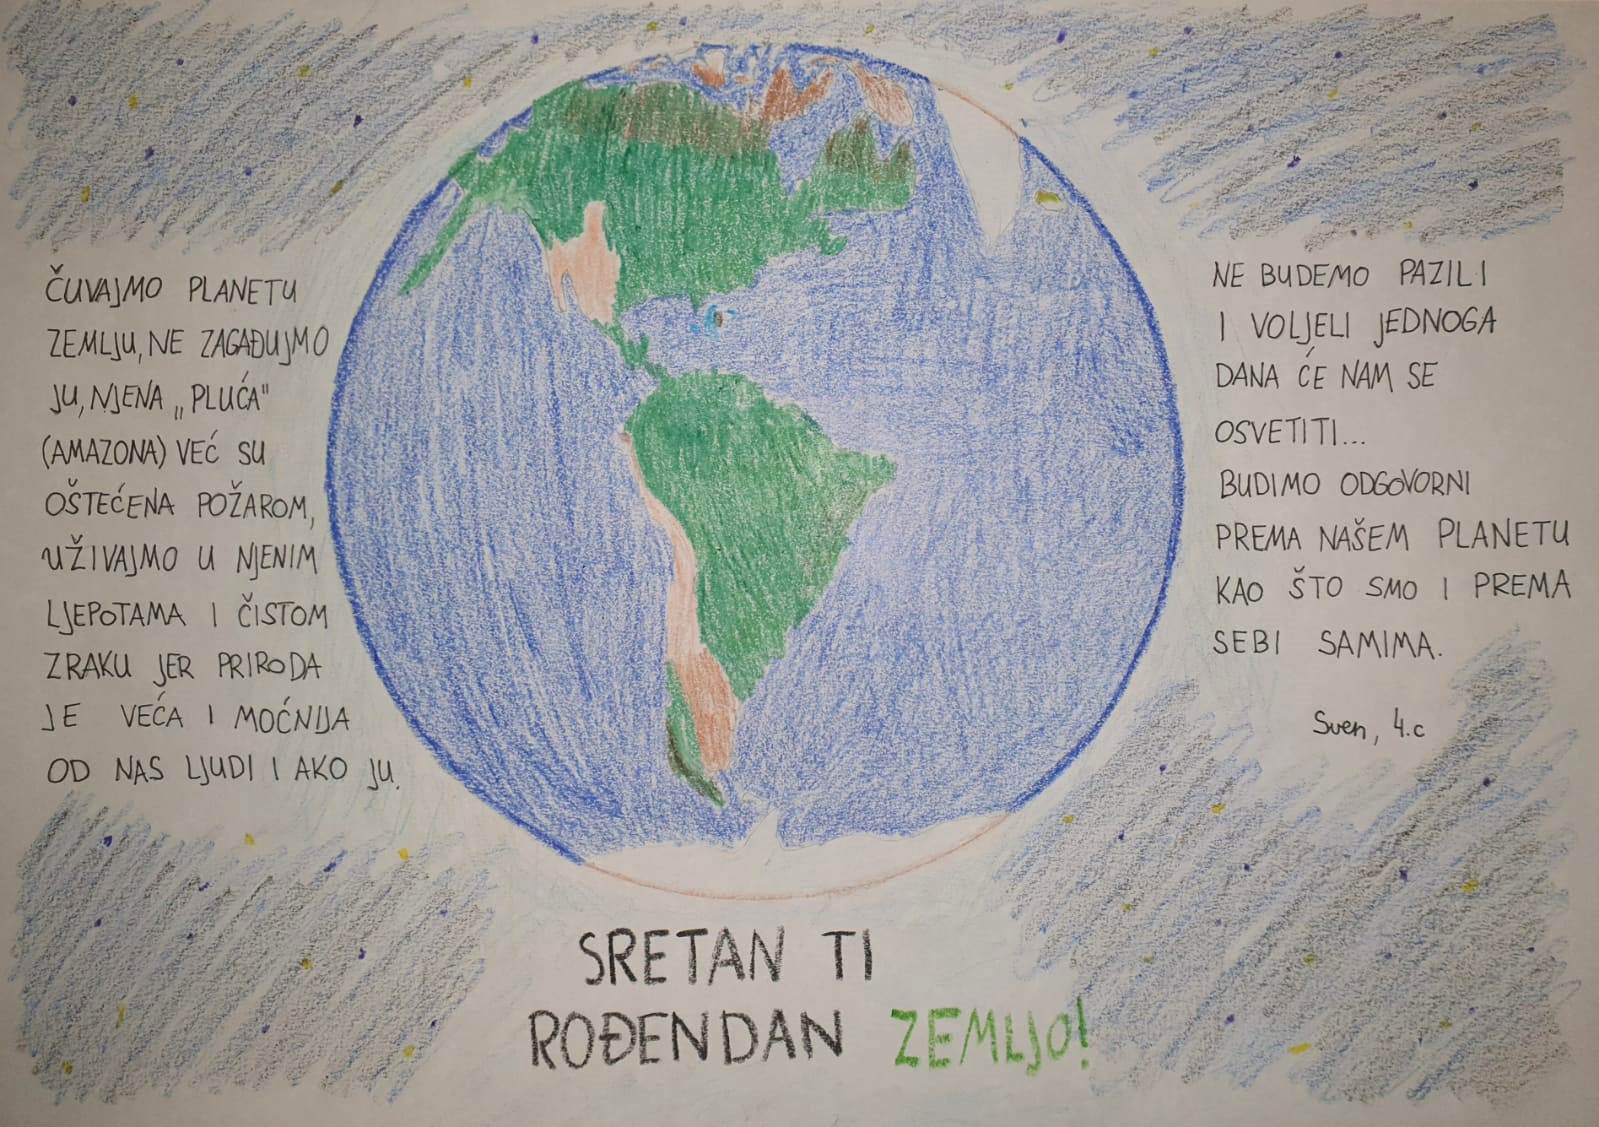 ČUVAJMO PLANETU
ZEMLJU, NE ZAGAĐUJMO
JU, NJENA „PLUĆA"
(AMAZONA) VEĆ SU
OŠTEĆENA POŽAROM,
UŽIVAJMO U NJENIM
LJEPOTAMA I ČISTOM
ZRAKU JER PRIRODA
JE VEĆA I MOĆNIJA
OD NAS LJUDI I AKO JU
NE BUDEMO PAZILI
I VOLJELI JEDNOGA
DANA ĆE NAM SE
OSVETITI...
BUDIMO ODGOVORNI
PREMA NAŠEM PLANETU
KAO ŠTO SMO I PREMA
SEBI SAMIMA.
Sven, 4.c
SRETAN TI
ROĐENDAN ZEMLJO!